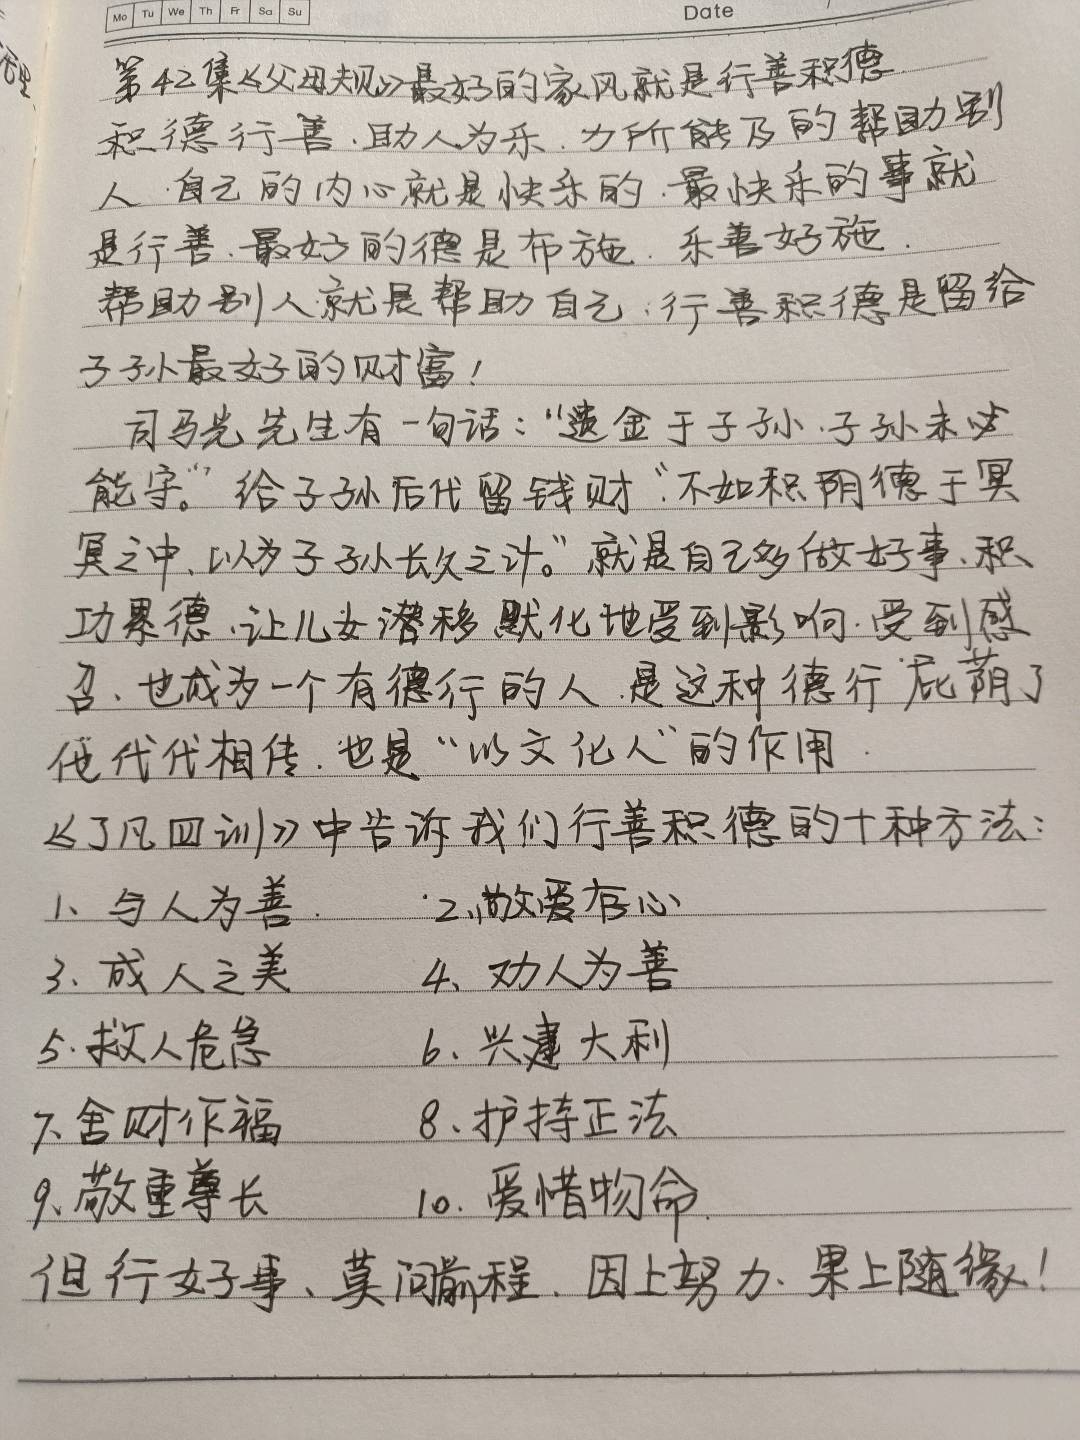 Mo Tu We Th Fr Sa Su
Date
第42集《父母规》最好的家风就是行善积德
积德行善.助人为乐.力所能及的帮助别
人.自己的内心就是快乐的.最快乐的事就
是行善.最好的德是布施.乐善好施.
帮助别人就是帮助自己.行善积德是留给
子子孙最好的财富！
司马光先生有一句话：“遗金于子孙.子孙未必
能守。”给子孙后代留钱财“不如积阴德于冥
冥之中、以为子孙长久之计。”就是自己多做好事、积
功累德.让儿女潜移默化地受到影响.受到感
召、也成为一个有德行的人.是这种德行庇荫了
他代代相传.也是“以文化人”的作用.
《了凡四训》中告诉我们行善积德的十种方法：
1、与人为善. 2、敬爱存心
3、成人之美 4、劝人为善
5.救人危急 6、兴建大利
7、舍财作福 8、护持正法
9、敬重尊长 10.爱惜物命.
但行好事、莫问前程.因上努力、果上随缘！